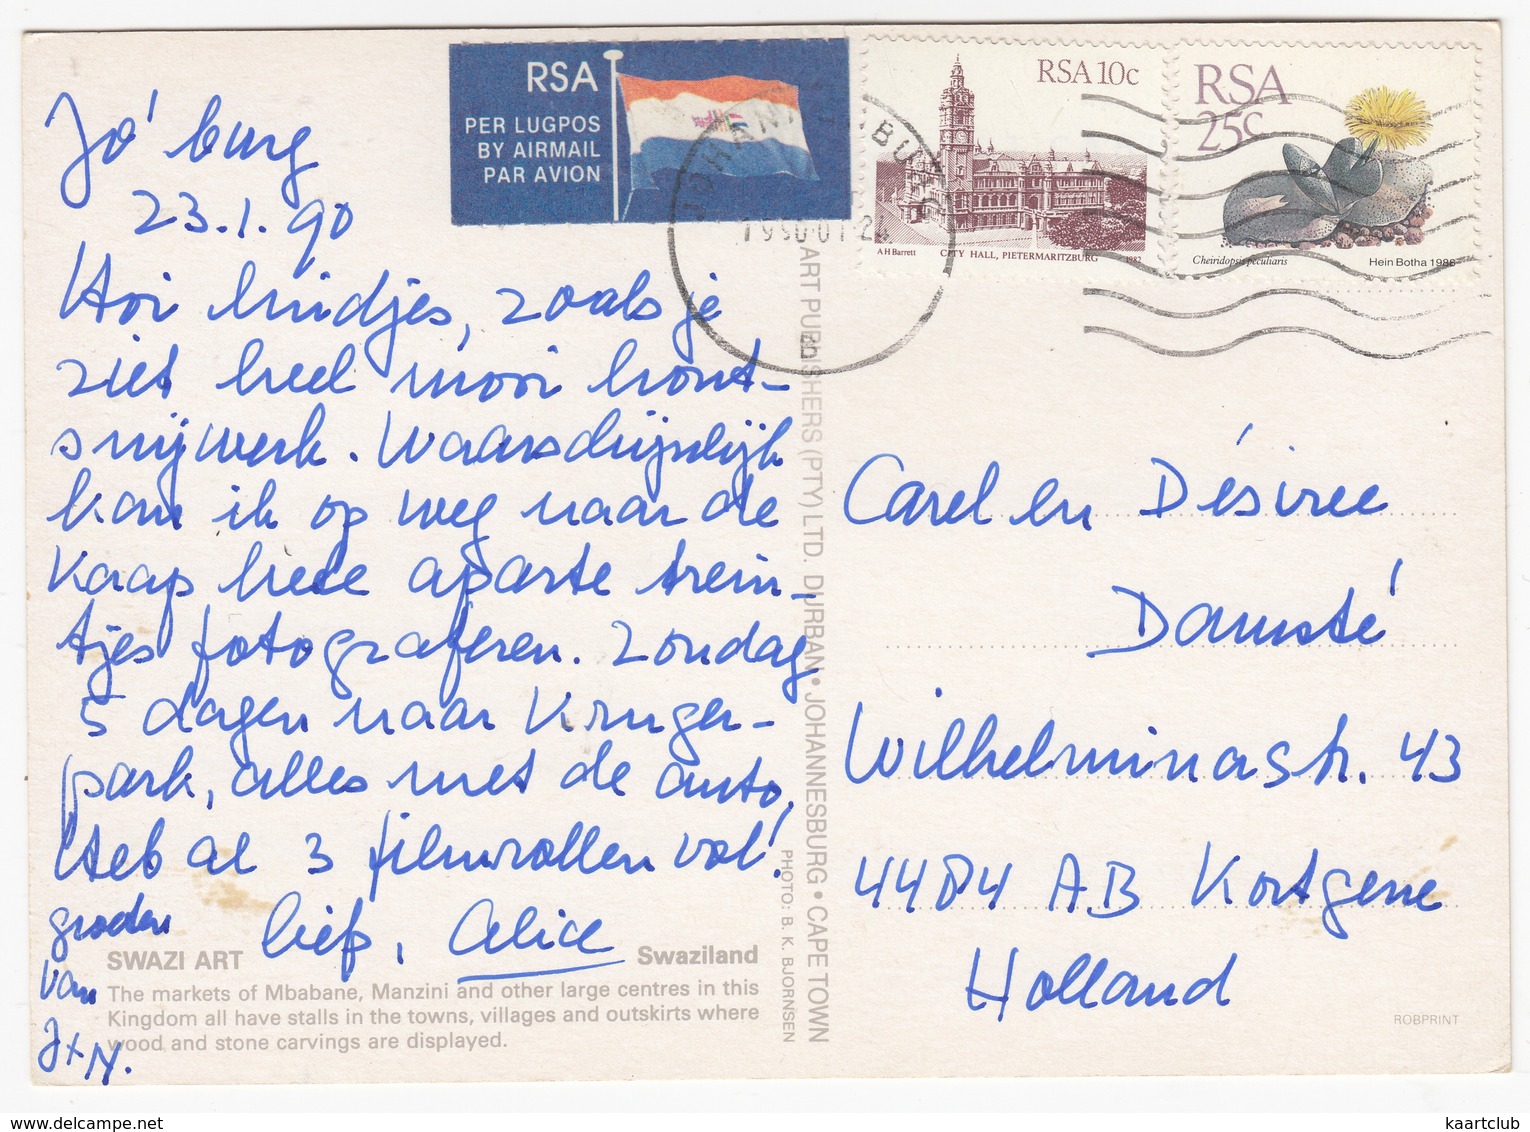 Jo'burg
23.1.90
Hoi luidjes, zoals je
ziet heel mooi hout-
snijwerk. Waarschijnlijk
kan ik op weg naar de
Kaap hele aparte trein-
tjes fotograferen. Zondag
5 dagen naar Kruger-
park, alles met de auto,
Heb al 3 filmrollen vol!
liefs, Alice
groeten
van
J+N.
RSA
PER LUGPOS
BY AIRMAIL
PAR AVION
JOHANNESBURG
B
RSA 10c
AH Barrett
CITY HALL, PIETERMARITZBURG
1982
RSA
25c
Cheiridopsis peculiaris
Hein Botha 1988
ART PUBLISHERS (PTY) LTD. DURBAN • JOHANNESBURG • CAPE TOWN
PHOTO: B. K. BJORNSEN
Carel en Désirée
Damsté
Wilhelminastr. 43
4484 AB Kortgene
Holland
SWAZI ART
Swaziland
The markets of Mbabane, Manzini and other large centres in this
Kingdom all have stalls in the towns, villages and outskirts where
wood and stone carvings are displayed.
ROBPRINT
www.delcampe.net
kaartclub